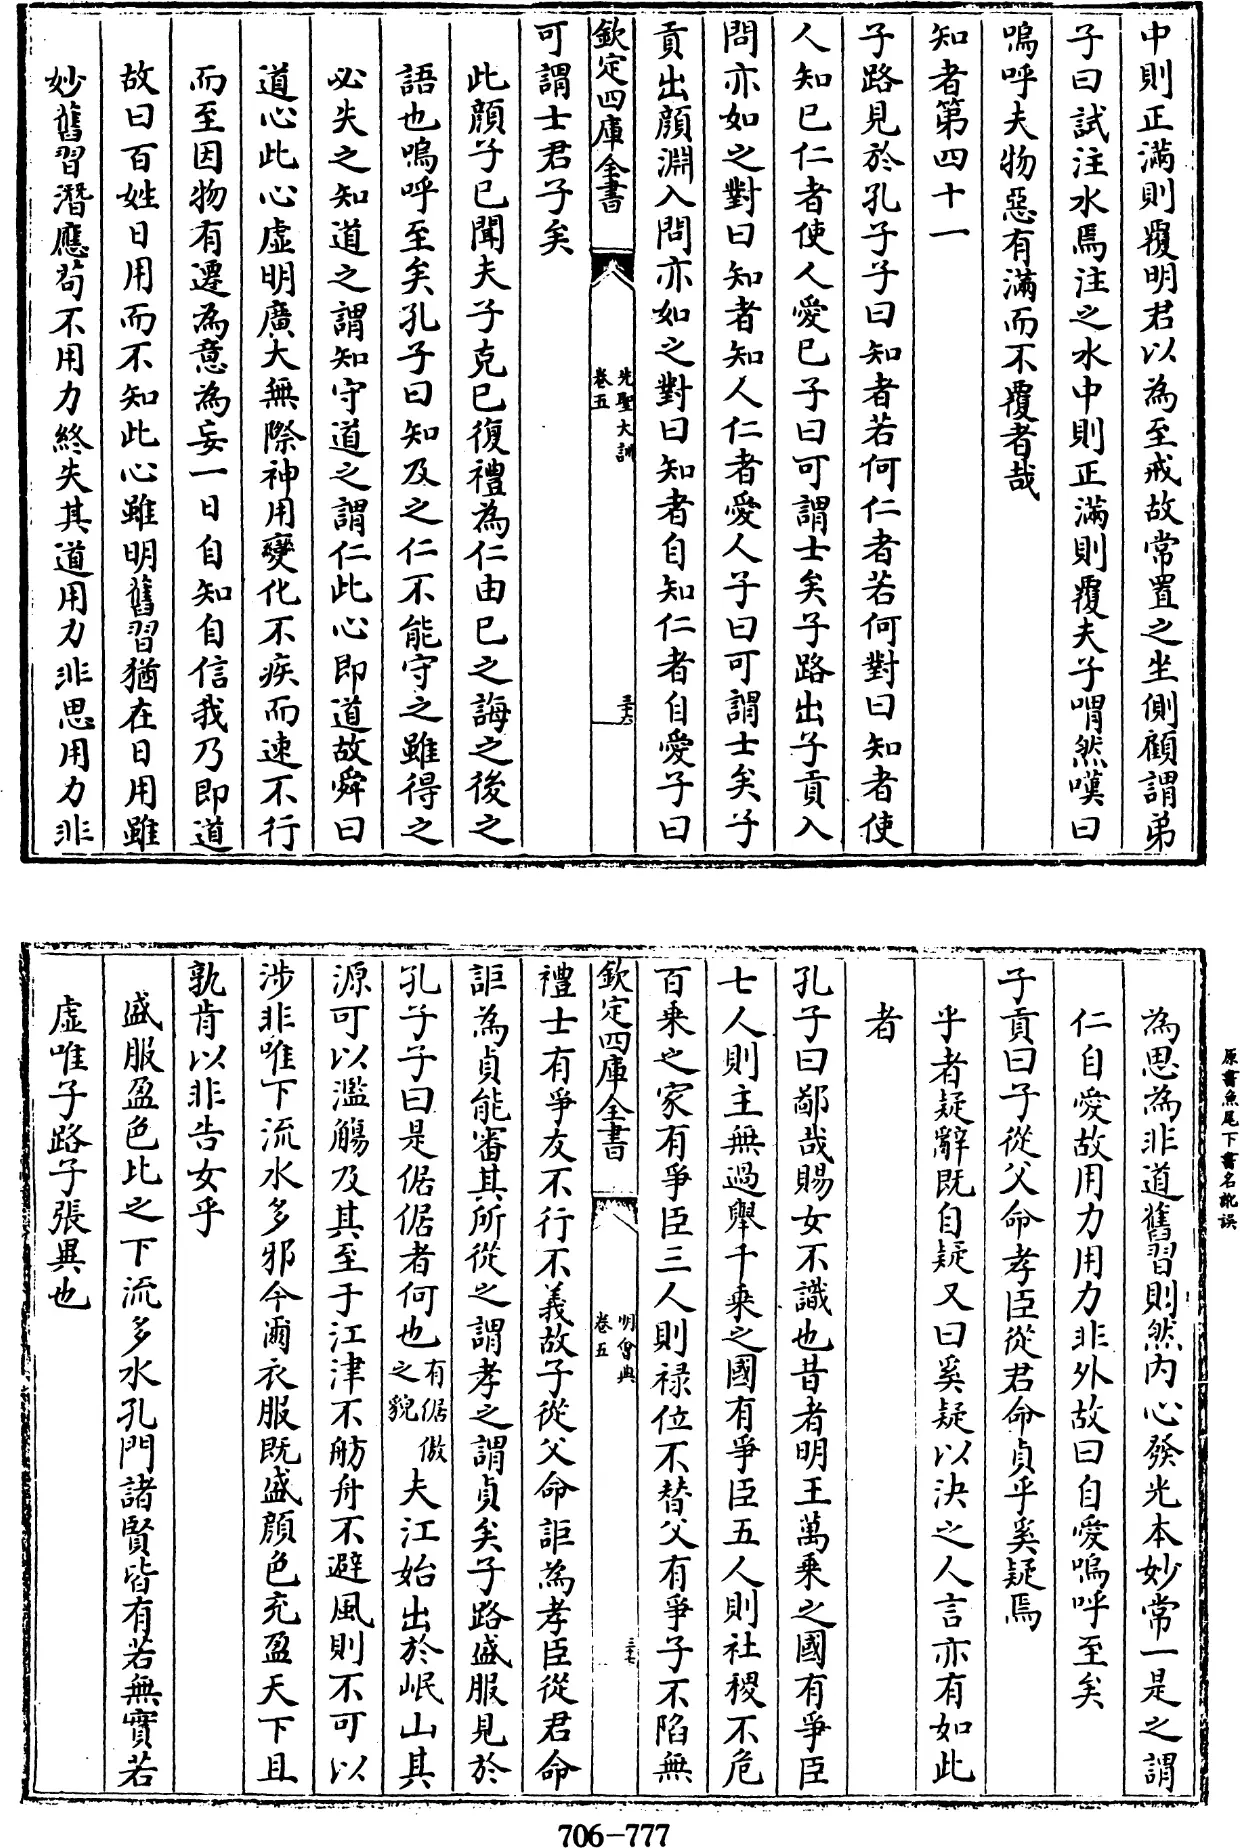 中則正滿則覆明君以為至戒故常置之坐側顧謂弟
子曰試注水焉注之水中則正滿則覆夫子喟然嘆曰
嗚呼夫物惡有滿而不覆者哉
知者第四十一
子路見於孔子子曰知者若何仁者若何對曰知者使
人知已仁者使人愛已子曰可謂士矣子路出子貢入
問亦如之對曰知者知人仁者愛人子曰可謂士矣子
貢出顏淵入問亦如之對曰知者自知仁者自愛子曰
欽定四庫全書
先聖大訓
卷五
三十六
可謂士君子矣
此顏子已聞夫子克已復禮為仁由已之誨之後之
語也嗚呼至矣孔子曰知及之仁不能守之雖得之
必失之知道之謂知守道之謂仁此心即道故舜曰
道心此心虛明廣大無際神用變化不疾而速不行
而至因物有遷為意為妄一日自知自信我乃即道
故曰百姓日用而不知此心雖明舊習猶在日用雖
妙舊習潛應茍不用力終失其道用力非思用力非
原書魚尾下書名訛誤
為思為非道舊習則然内心發光本妙常一是之謂
仁自愛故用力用力非外故曰自愛嗚呼至矣
子貢曰子從父命孝臣從君命貞乎奚疑焉
乎者疑辭既自疑又曰奚疑以決之人言亦有如此
者
孔子曰鄙哉賜女不識也昔者明王萬乘之國有爭臣
七人則主無過舉千乘之國有爭臣五人則社稷不危
百乘之家有爭臣三人則祿位不替父有爭子不陷無
欽定四庫全書
明會典
卷五
三十七
禮士有爭友不行不義故子從父命詎為孝臣從君命
詎為貞能審其所從之謂孝之謂貞矣子路盛服見於
孔子子曰是倨倨者何也有倨傲之貌夫江始出於岷山其
源可以濫觴及其至于江津不舫舟不避風則不可以
涉非唯下流水多邪今爾衣服既盛顏色充盈天下且
孰肯以非告女乎
盛服盈色比之下流多水孔門諸賢皆有若無實若
虛唯子路子張異也
706-777